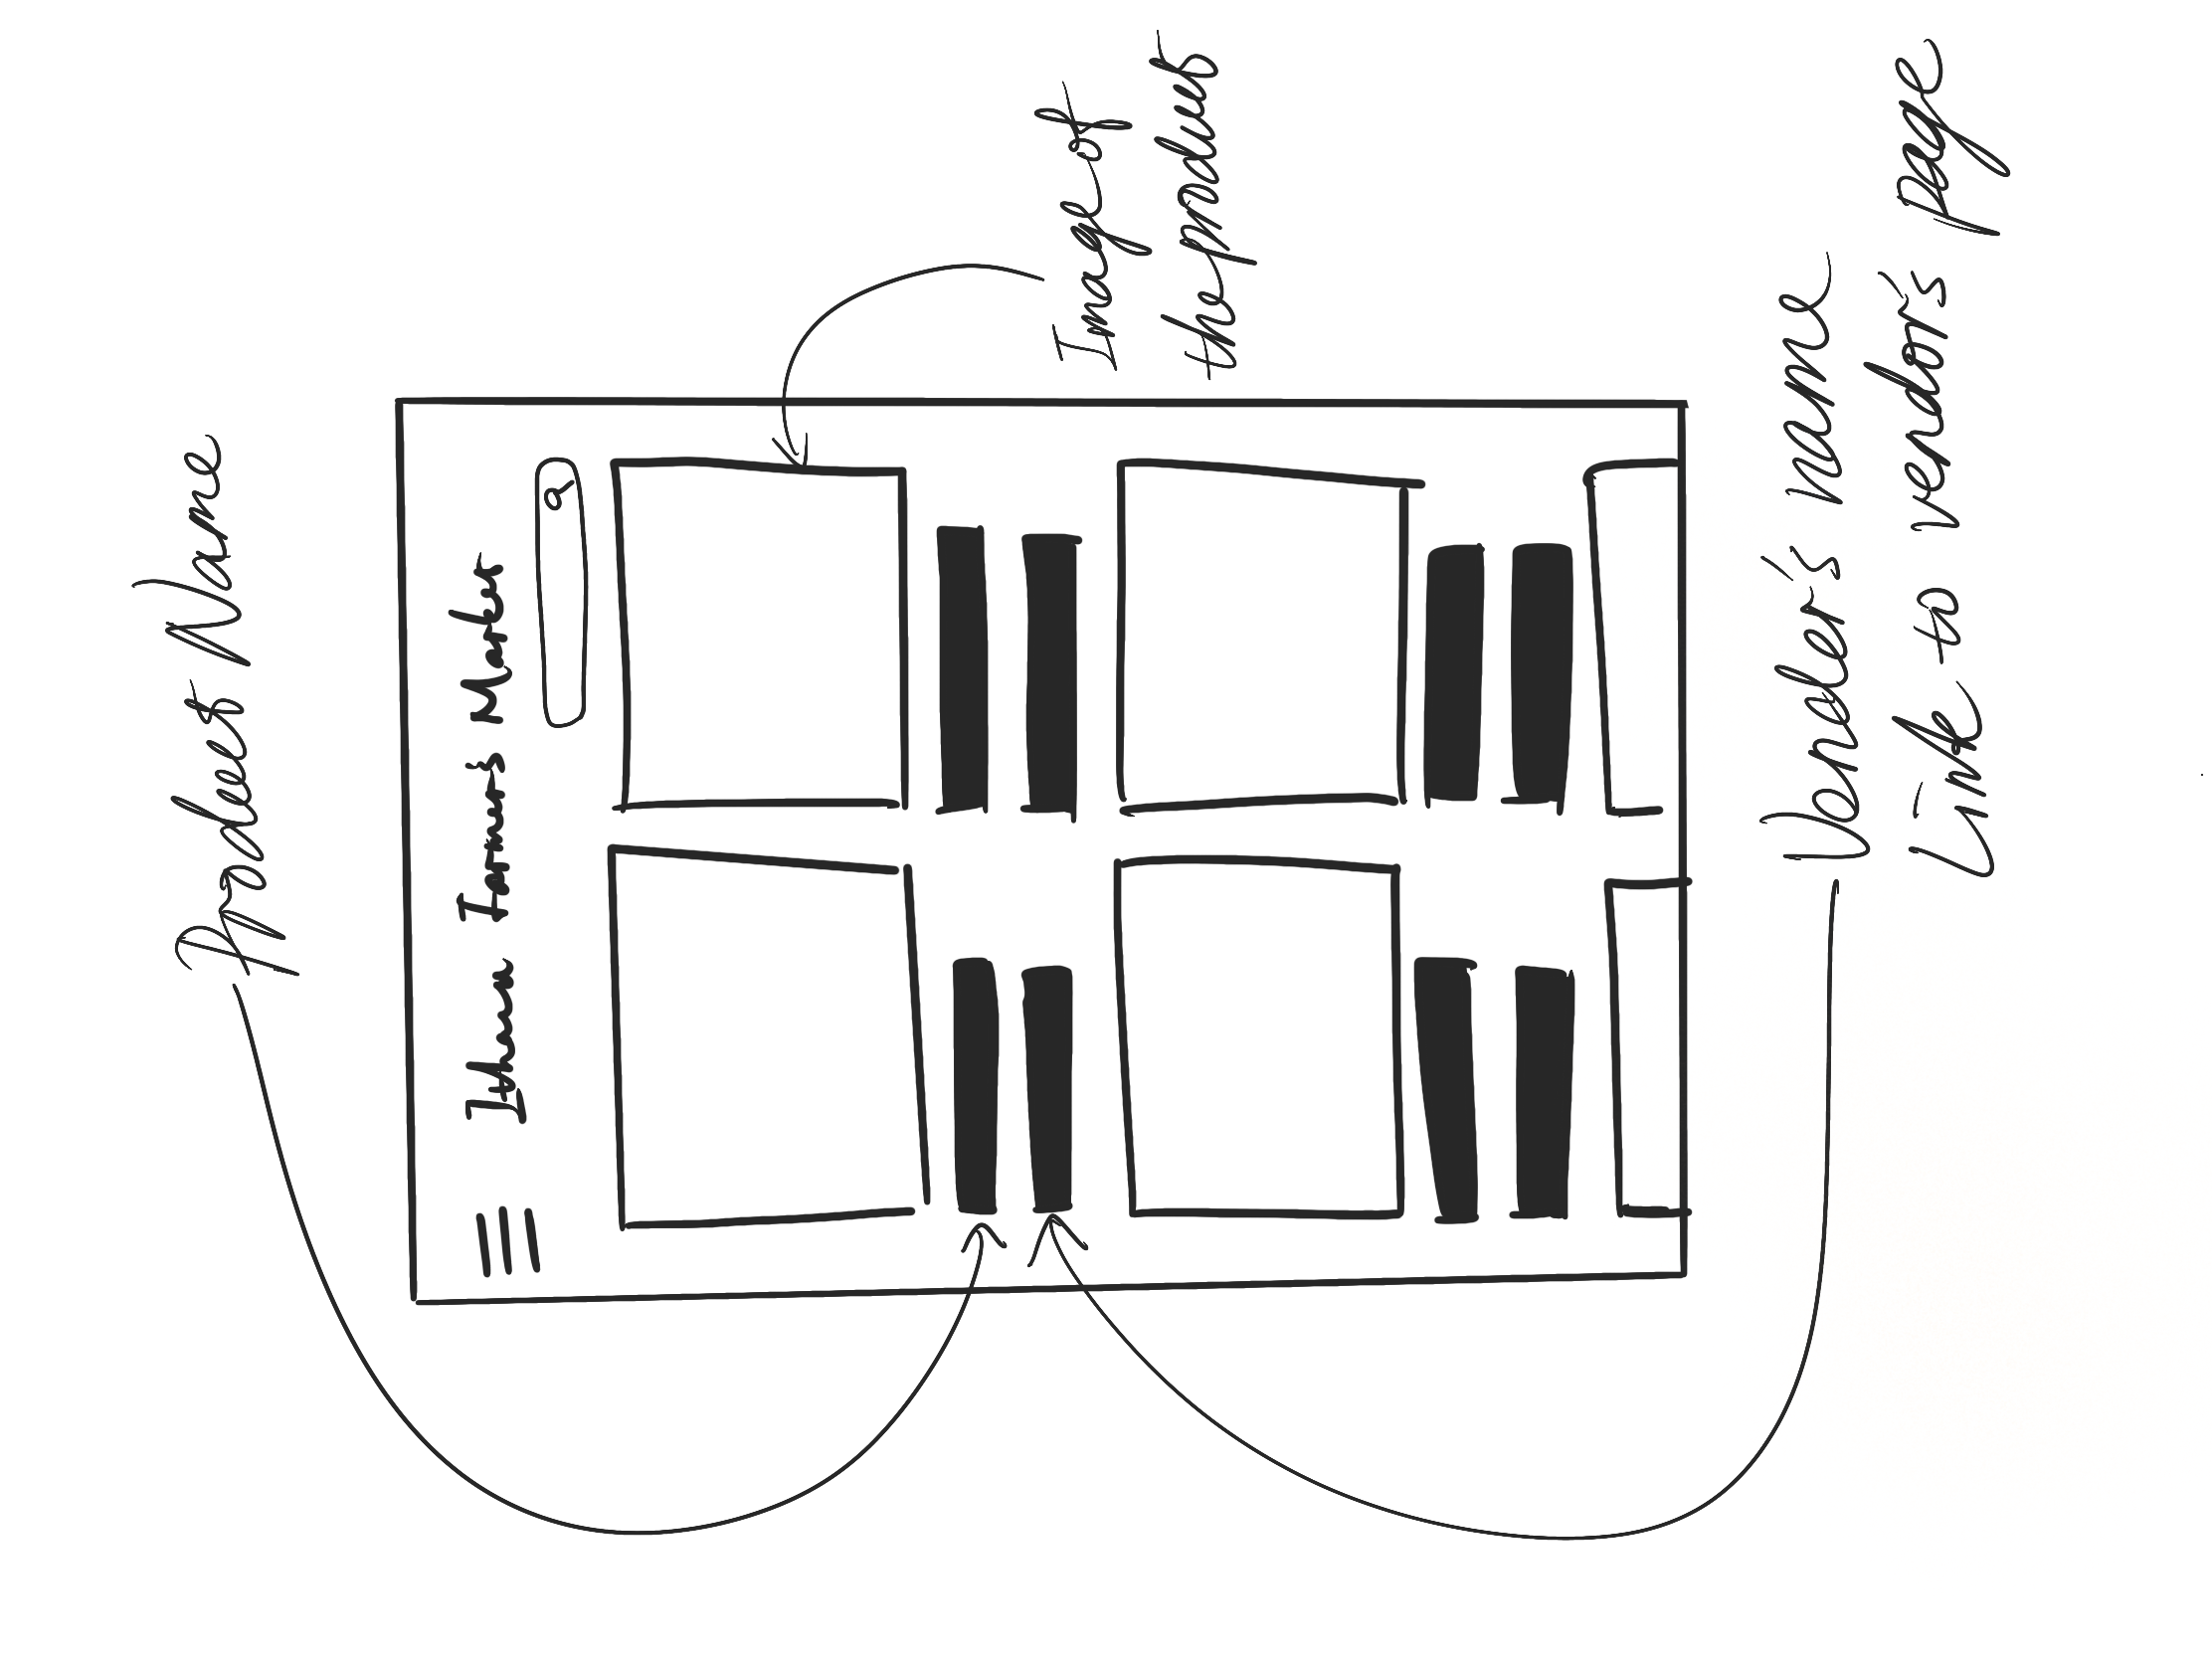 Product Name
Ithaca Farmer's Market
Image of
the product
Vender's name
Link to vendor's page